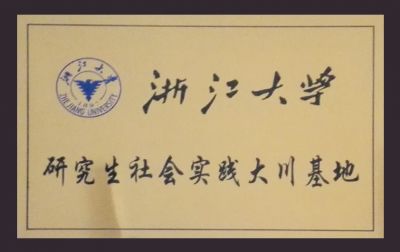 浙江大学
ZHEJIANG UNIVERSITY
1897
浙江大学
研究生社会实践大川基地